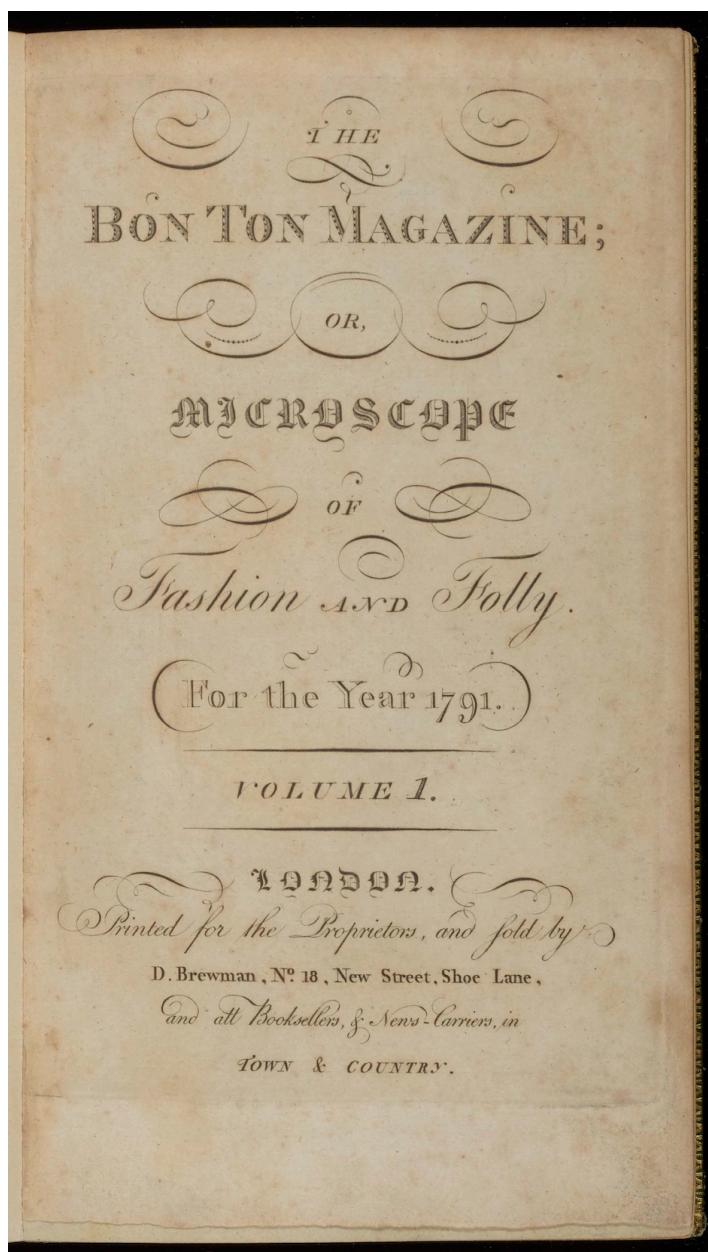 THE
BON TON MAGAZINE;
OR,
MICROSCOPE
OF
Fashion AND Folly.
For the Year 1791.
VOLUME 1.
LONDON.
Printed for the Proprietors, and ſold by
D. Brewman, Nº. 18, New Street, Shoe Lane,
and all Booksellers, & News-Carriers, in
TOWN & COUNTRY.